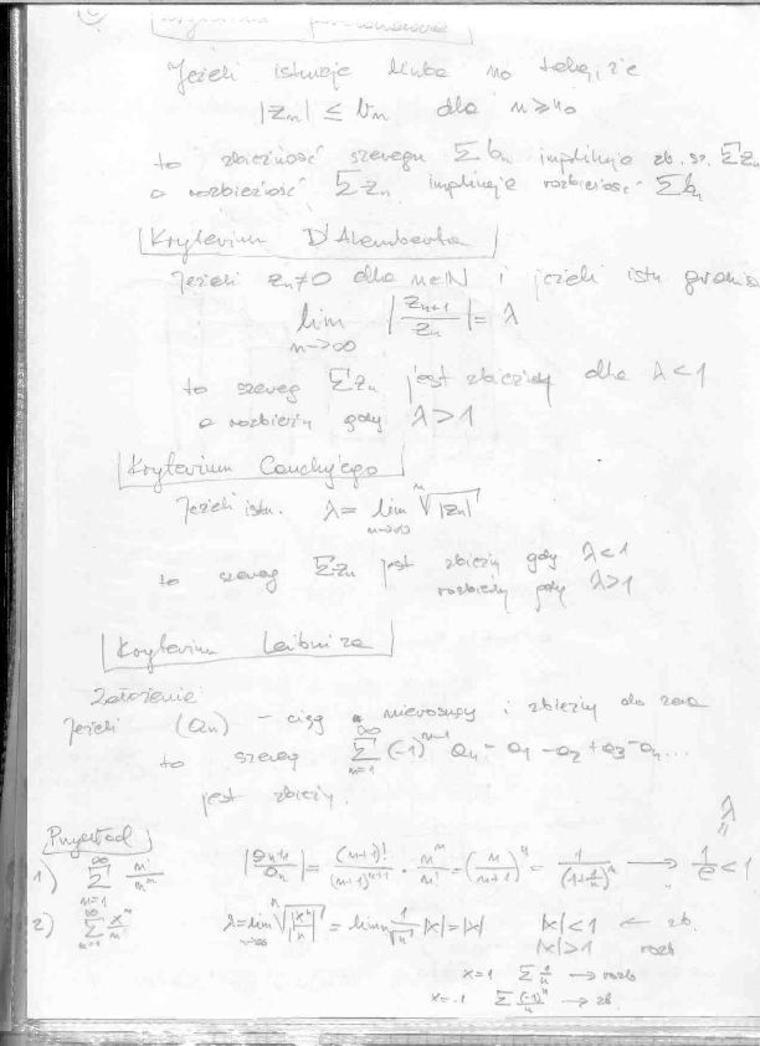 Kryterium porównawcze
Jeżeli istnieje liczba n₀ taka, że
|zₙ| ≤ bₙ dla n ≥ n₀
to zbieżność szeregu Σbₙ implikuje zb. sz. Σzₙ
a rozbieżność Σzₙ implikuje rozbieżość Σbₙ
Kryterium D'Alemberta
Jeżeli zₙ≠0 dla n∈N i jeżeli istn granica
lim n→∞ |zₙ₊₁/zₙ| = λ
to szereg Σzₙ jest zbieżny dla λ<1
a rozbieżny gdy λ>1
Kryterium Cauchy'ego
Jeżeli istn. λ = lim n→∞ ⁿ√|zₙ|
to szereg Σzₙ jest zbieżny gdy λ<1
rozbieżny gdy λ>1
Kryterium Leibniza
Założenie
Jeżeli (aₙ) - ciąg nierosnący i zbieżny do zera
to szereg ∞Σn=1 (-1)ⁿ⁻¹ aₙ = a₁ - a₂ + a₃ - a₄...
jest zbieżny.
Przykład
1) ∞Σn=1 n!/nⁿ |aₙ₊₁/aₙ| = (n+1)!/(n+1)ⁿ⁺¹ · nⁿ/n! = (n/(n+1))ⁿ = 1/(1+1/n)ⁿ → 1/e < 1
λ
"
2) ∞Σn=1 xⁿ/n λ = lim n→∞ ⁿ√|xⁿ/n| = lim 1/ⁿ√n |x| = |x| |x|<1 ← zb.
|x|>1 rozb
x=1 Σ 1/n → rozb
x=-1 Σ (-1)ⁿ/n → zb.